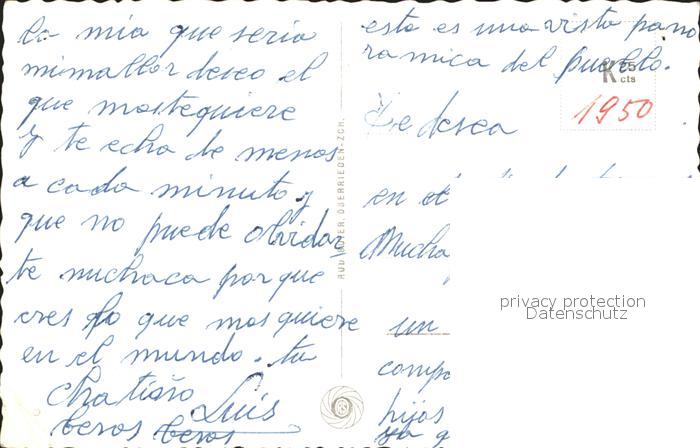 la mia que seria
mi mallor deseo el
que mastequiere
y te echa de menos
a cada minuto y
que no puede olvidar
te muchaca porque
eres lo que mas quiere
en el mundo. tu
Luis
besos besos
esta es una vista pano
ramica del pueblo.
K 25
cts
1950
Te desea
en el
Mucha
un
comp
hijos
ya q
RUD. SUTER, OBERRIEDEN-ZCH.
privacy protection
Datenschutz